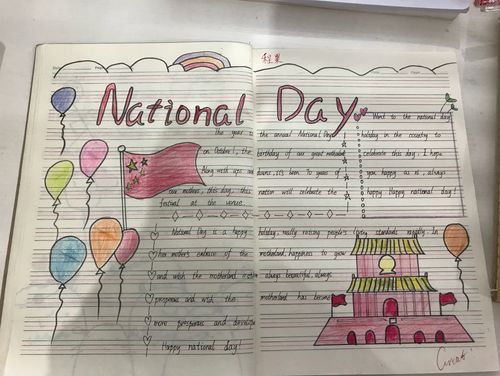 程果
National Day
the year
the annual National Day
on October 1, the
birthday of our great motherland
Along with ups and
downs, it's been 70 years of
our mothers, this day, this
nation will celebrate the
festival at the venue.
Want to the national day
holiday in the country to
celebrate this day. I hope
you happy as is, always
happy. Happy national day!
National Day is a happy
holiday, really raising people's living standards majority In
her mothers embrace of the
motherland, happiness to you
and wish the motherland
always beautiful, always
prosperous and wish the
motherland has become
more prosperous and
Happy national day!
Great